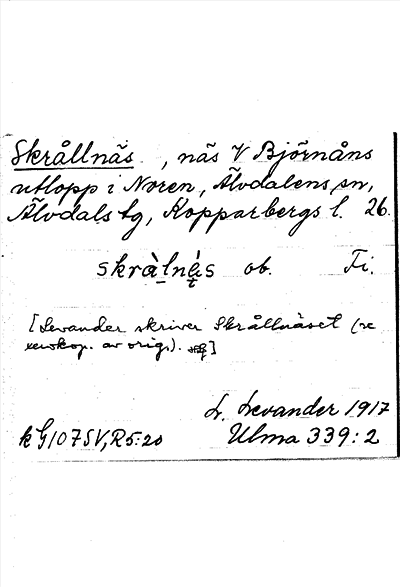 Skrållnäs, näs V Björnåns
utlopp i Noren, Älvdalens sn,
Älvdals tg, Kopparbergs l. 26.
skràlnä́s ob. Fi.
[Levander skriver Skrållnäset (se
xeroxkop. av orig.). ]
L. Levander 1917
k G107SV, R5:20 Ulma 339:2